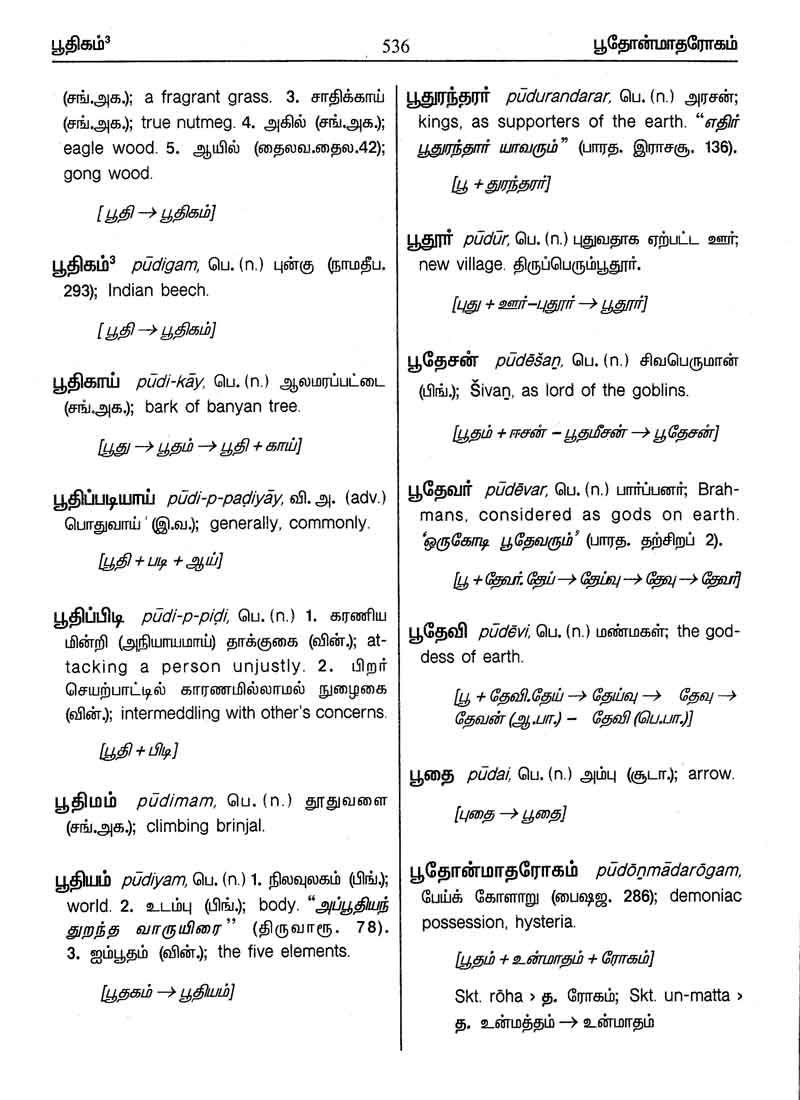 பூதிகம்³
536
பூதோன்மாதரோகம்
(சங்.அக.); a fragrant grass. 3. சாதிக்காய்
(சங்.அக.); true nutmeg. 4. அகில் (சங்.அக.);
eagle wood. 5. ஆயில் (தைலவ.தைல.42);
gong wood.
[பூதி → பூதிகம்]
பூதிகம்³ pūdigam, பெ. (n.) புன்கு (நாமதீப.
293); Indian beech.
[பூதி → பூதிகம்]
பூதிகாய் pūdi-kāy, பெ. (n.) ஆலமரப்பட்டை
(சங்.அக.); bark of banyan tree.
[பூது → பூதம் → பூதி + காய்]
பூதிப்படியாய் pūdi-p-paḍiyāy, வி. அ. (adv.)
பொதுவாய் (இ.வ.); generally, commonly.
[பூதி + படி + ஆய்]
பூதிப்பிடி pūdi-p-piḍi, பெ. (n.) 1. கரணிய
மின்றி (அநியாயமாய்) தாக்குகை (வின்.); at-
tacking a person unjustly. 2. பிறர்
செயற்பாட்டில் காரணமில்லாமல் நுழைகை
(வின்.); intermeddling with other's concerns.
[பூதி + பிடி]
பூதிமம் pūdimam, பெ. (n.) தூதுவளை
(சங்.அக.); climbing brinjal.
பூதியம் pūdiyam, பெ. (n.) 1. நிலவுலகம் (பிங்.);
world. 2. உடம்பு (பிங்.); body. "அப்பூதியந்
துறந்த வாருயிரை" (திருவாரூ. 78).
3. ஐம்பூதம் (வின்.); the five elements.
[பூதகம் → பூதியம்]
பூதுரந்தரர் pūdurandarar, பெ. (n.) அரசன்;
kings, as supporters of the earth. "எதிர்
பூதுரந்தார் யாவரும்" (பாரத. இராசசூ. 136).
[பூ + துரந்தரர்]
பூதூர் pūdūr, பெ. (n.) புதுவதாக ஏற்பட்ட ஊர்;
new village. திருப்பெரும்பூதூர்.
[புது + ஊர்–புதூரர் → பூதூர்]
பூதேசன் pūdēšaṉ, பெ. (n.) சிவபெருமான்
(பிங்.); Šivaṉ, as lord of the goblins.
[பூதம் + ஈசன் – பூதமீசன் → பூதேசன்]
பூதேவர் pūdēvar, பெ. (n.) பார்ப்பனர்; Brah-
mans, considered as gods on earth.
'ஒருகோடி பூதேவரும்' (பாரத. தற்சிறப் 2).
[பூ + தேவர். தேய் → தேய்வு → தேவு → தேவர்]
பூதேவி pūdēvi, பெ. (n.) மண்மகள்; the god-
dess of earth.
[பூ + தேவி.தேய் → தேய்வு → தேவு →
தேவன் (ஆ.பா.) – தேவி (பெ.பா.)]
பூதை pūdai, பெ. (n.) அம்பு (சூடா.); arrow.
[புதை → பூதை]
பூதோன்மாதரோகம் pūdōṉmādarōgam,
பேய்க் கோளாறு (பைஷஜ. 286); demoniac
possession, hysteria.
[பூதம் + உன்மாதம் + ரோகம்]
Skt. rōha > த. ரோகம்; Skt. un-matta >
த. உன்மத்தம் → உன்மாதம்